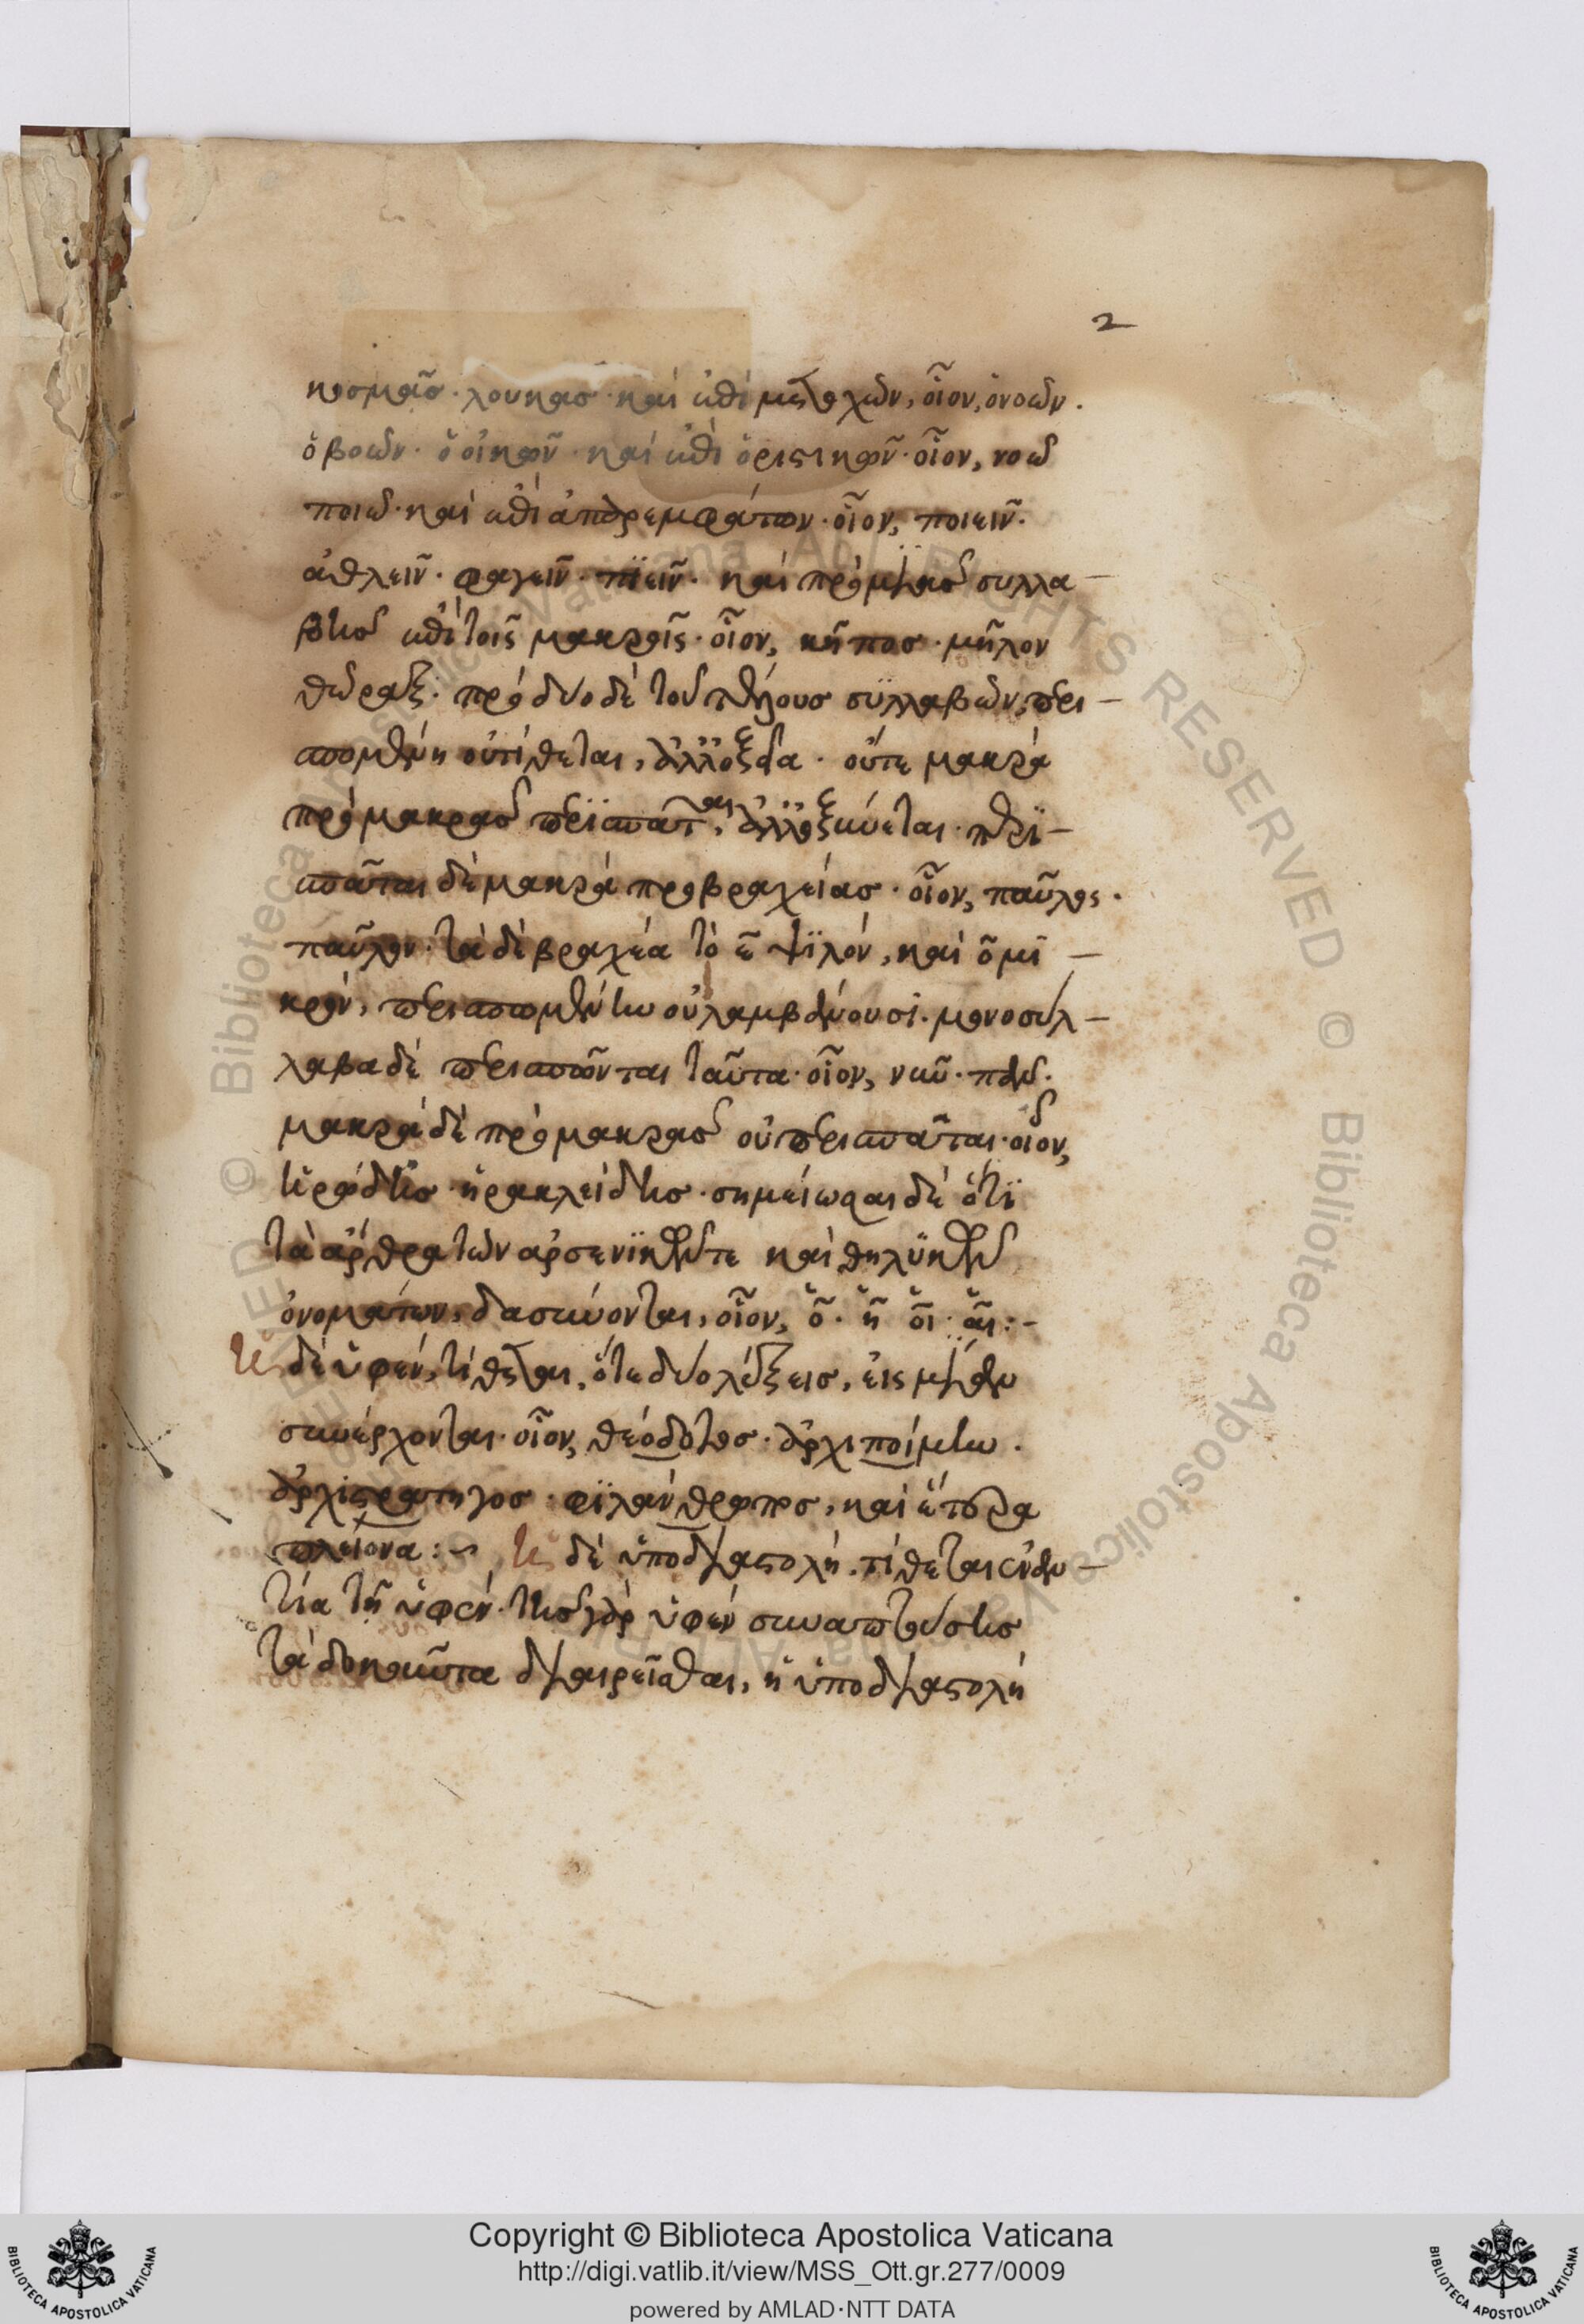 2
κοσμᾶσ · λουκασ · καὶ ἐπὶ μετοχῶν, οἷον, ὁ νοῶν ·
ὁ βοῶν · ὁ οἰκῶν · καὶ ἐπὶ ὁριστικῶν · οἷον, νοῶ
ποιῶ · καὶ ἐπὶ ἀπαρεμφάτων · οἷον, ποιεῖν ·
ἀθλεῖν · φαγεῖν · πϊεῖν · καὶ πρὸ μιᾶσ συλλα –
βῆσ ἐπὶ τοῖς μακροῖς · οἷον, κῆποσ · μῆλον
θῶραξ · πρὸ δύο δὲ τοῦ τέλουσ συλλαβῶν, περι –
σπομένη οὐ τίθεται, ἀλλ' ὀξεῖα · οὔτε μακρὰ
πρὸ μακρᾶσ περισπᾶται, ἀλλ' ὀξύνεται · περϊ –
σπᾶται δὲ μακρὰ προ βραχείασ · οἷον, παῦλος ·
παῦλον · τὰ δὲ βραχέα τὸ ε ψϊλόν, καὶ ο μι –
κρὸν, περισπωμένην οὐ λαμβάνουσι · μονοσύλ –
λαβα δὲ περισπῶνται ταῦτα · οἷον, νῦν · πᾶν ·
μακρὰ δὲ πρὸ μακρᾶσ οὐ περισπᾶται · οἷον,
ἡρώδησ · ἡρακλείδησ · σημείωσαι δὲ ὅτϊ
τὰ ἄρθρα τῶν ἀρσενϊκῶν τε καὶ θηλϋκῶν
ὀνομάτων, δασύνονται, οἷον, ὁ · ἡ οἱ · αἱ : –
Ἡ δὲ ὑφέν, τίθεται, ὅτε δύο λέξεισ, εἰς μίαν
συνέρχονται · οἷον, θεόδοτοσ · ἀρχιποίμην ·
ἀρχιστρατηγοσ · φϊλάνθρωποσ, καὶ ἕτερα
πλείονα : ~ Ἡ δὲ ὑποδιαστολὴ · τίθεται ἐναν –
τία τῇ ὑφέν · τῆσ γὰρ ὑφέν συναπτούσησ
τὰ δοκοῦντα διαιρεῖσθαι, ἡ ὑποδιαστολὴ
© Biblioteca Apostolica Vaticana ALL RIGHTS RESERVED © Biblioteca Apostolica Vaticana
Copyright © Biblioteca Apostolica Vaticana
http://digi.vatlib.it/view/MSS_Ott.gr.277/0009
powered by AMLAD·NTT DATA
BIBLIOTECA APOSTOLICA VATICANA
BIBLIOTECA APOSTOLICA VATICANA